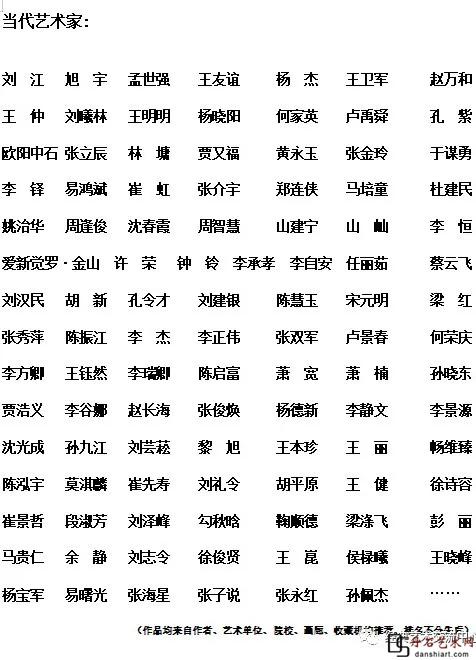 当代艺术家：
刘 江 旭 宇 孟世强 王友谊 杨 杰 王卫军 赵万和
王 仲 刘曦林 王明明 杨晓阳 何家英 卢禹舜 孔 紫
欧阳中石 张立辰 林 墉 贾又福 黄永玉 张金玲 于谋勇
李 铎 易鸿斌 崔 虹 张介宇 郑连侠 马培童 杜建民
姚治华 周逢俊 沈春霞 周智慧 山建宁 山 屾 李 恒
爱新觉罗·金山 许 荣 钟 铃 李承孝 李自安 任丽茹 蔡云飞
刘汉民 胡 新 孔令才 刘建银 陈慧玉 宋元明 梁 红
张秀萍 陈振江 李 杰 李正伟 张双军 卢景春 何荣庆
李方卿 王钰然 李瑞卿 陈启富 萧 宽 萧 楠 孙晓东
贾浩义 李谷娜 赵长海 张俊焕 杨德新 李静文 李景源
沈光成 孙九江 刘芸菘 黎 旭 王本珍 王 丽 畅维臻
陈泓宇 莫淇麟 崔先寿 刘礼令 胡平原 王 健 徐诗容
崔景哲 段淑芳 刘泽峰 勾秋晗 鞠顺德 梁涤飞 彭 丽
马贵仁 余 静 刘志令 徐俊贤 王 崑 侯禄曦 王晓峰
杨宝军 易曙光 张海星 张子说 张永红 孙佩杰 ……
（作品均来自作者、艺术单位、院校、画廊、收藏机构推荐，排名不分先后）
丹石艺术网
danshiart.com